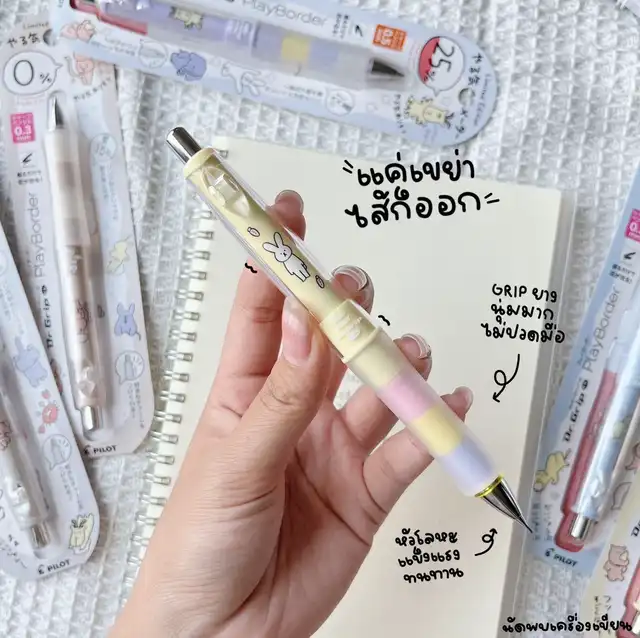 PlayBorder
0%
25%
0.5
0.3
PlayBorder
Dr.Grip
PILOT
PILOT
แค่เขย่า
ไส้ก็ออก
GRIP ยาง
นุ่มมาก
ไม่ปวดมือ
PlayBorder
Dr.Grip
PILOT
หัวโลหะ
แข็งแรง
ทนทาน
นัดพบเครื่องเขียน